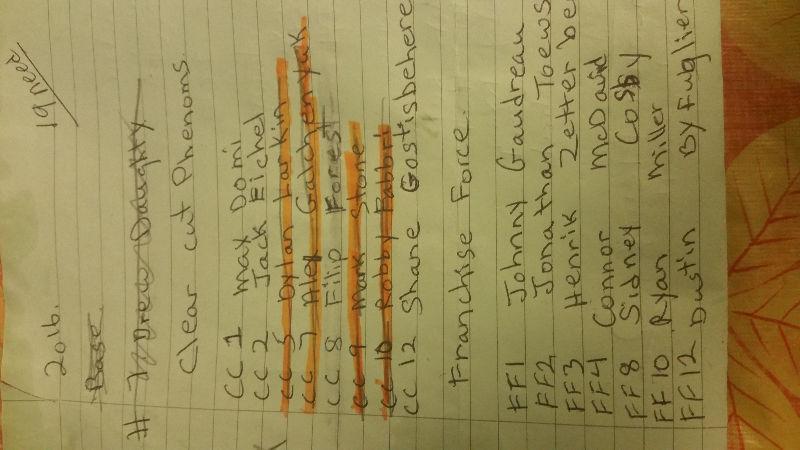 19 need
2016.
Base
# 2 Drew Daughty
Clear cut Phenoms.
CC 1 Max Domi
CC 2 Jack Eichel
CC 5 Dylan Larkin
CC 7 Alex Galchenyuk
CC 8 Filip Forest
CC 9 Mark Stone
CC 10 Robby Fabbri
CC 12 Shane Gostisbehere
Franchise Force.
FF1 Johnny Gaudreau
FF2 Jonathan Toews
FF3 Henrik Zetterbe
FF4 Connor McDavid
FF8 Sidney Cosby
FF10 Ryan Miller
FF12 Dustin Byfuglien